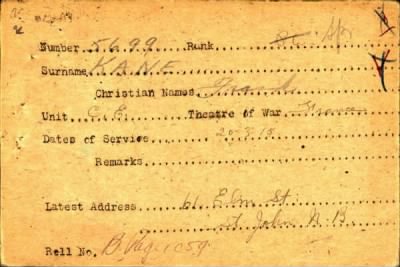 Number 5699 Rank Spr
Surname KANE
Christian Names Frank
Unit C.E. Theatre of War France
Dates of Service
Remarks
Latest Address 61 Elm St
St. John N.B.
Roll No. B Page